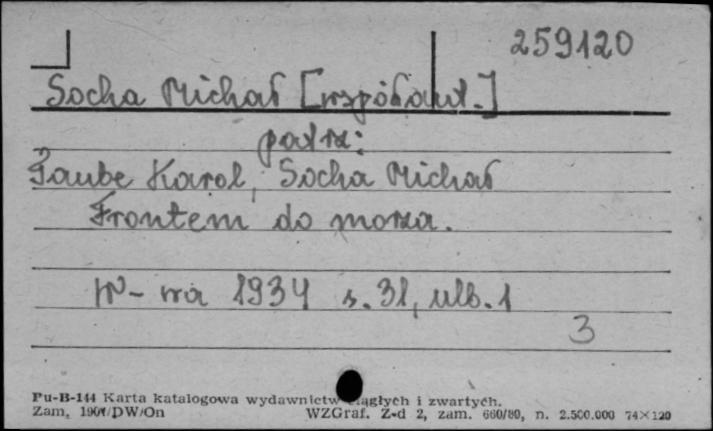 259120
Socha Michał [współaut.]
patrz:
Taube Karol, Socha Michał
Frontem do morza.
W-wa 1934 s. 31, ulb. 1
3
Pu-B-144 Karta katalogowa wydawnictw ciągłych i zwartych.
Zam. /DW/On WZGraf. Z-d 2, zam. 660/80, n. 2.500.000 74×120